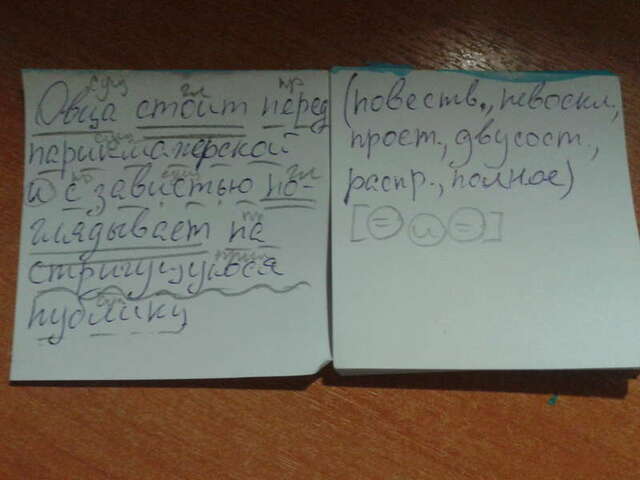 сущ гл пр
Овца стоит перед
сущ
парикмахерской
пр сущ гл
и с завистью по-
глядывает на
пр
стригущуюся
прич
публику
сущ
(повеств., невоскл.,
прост., двусост.,
распр., полное)
[= и =]